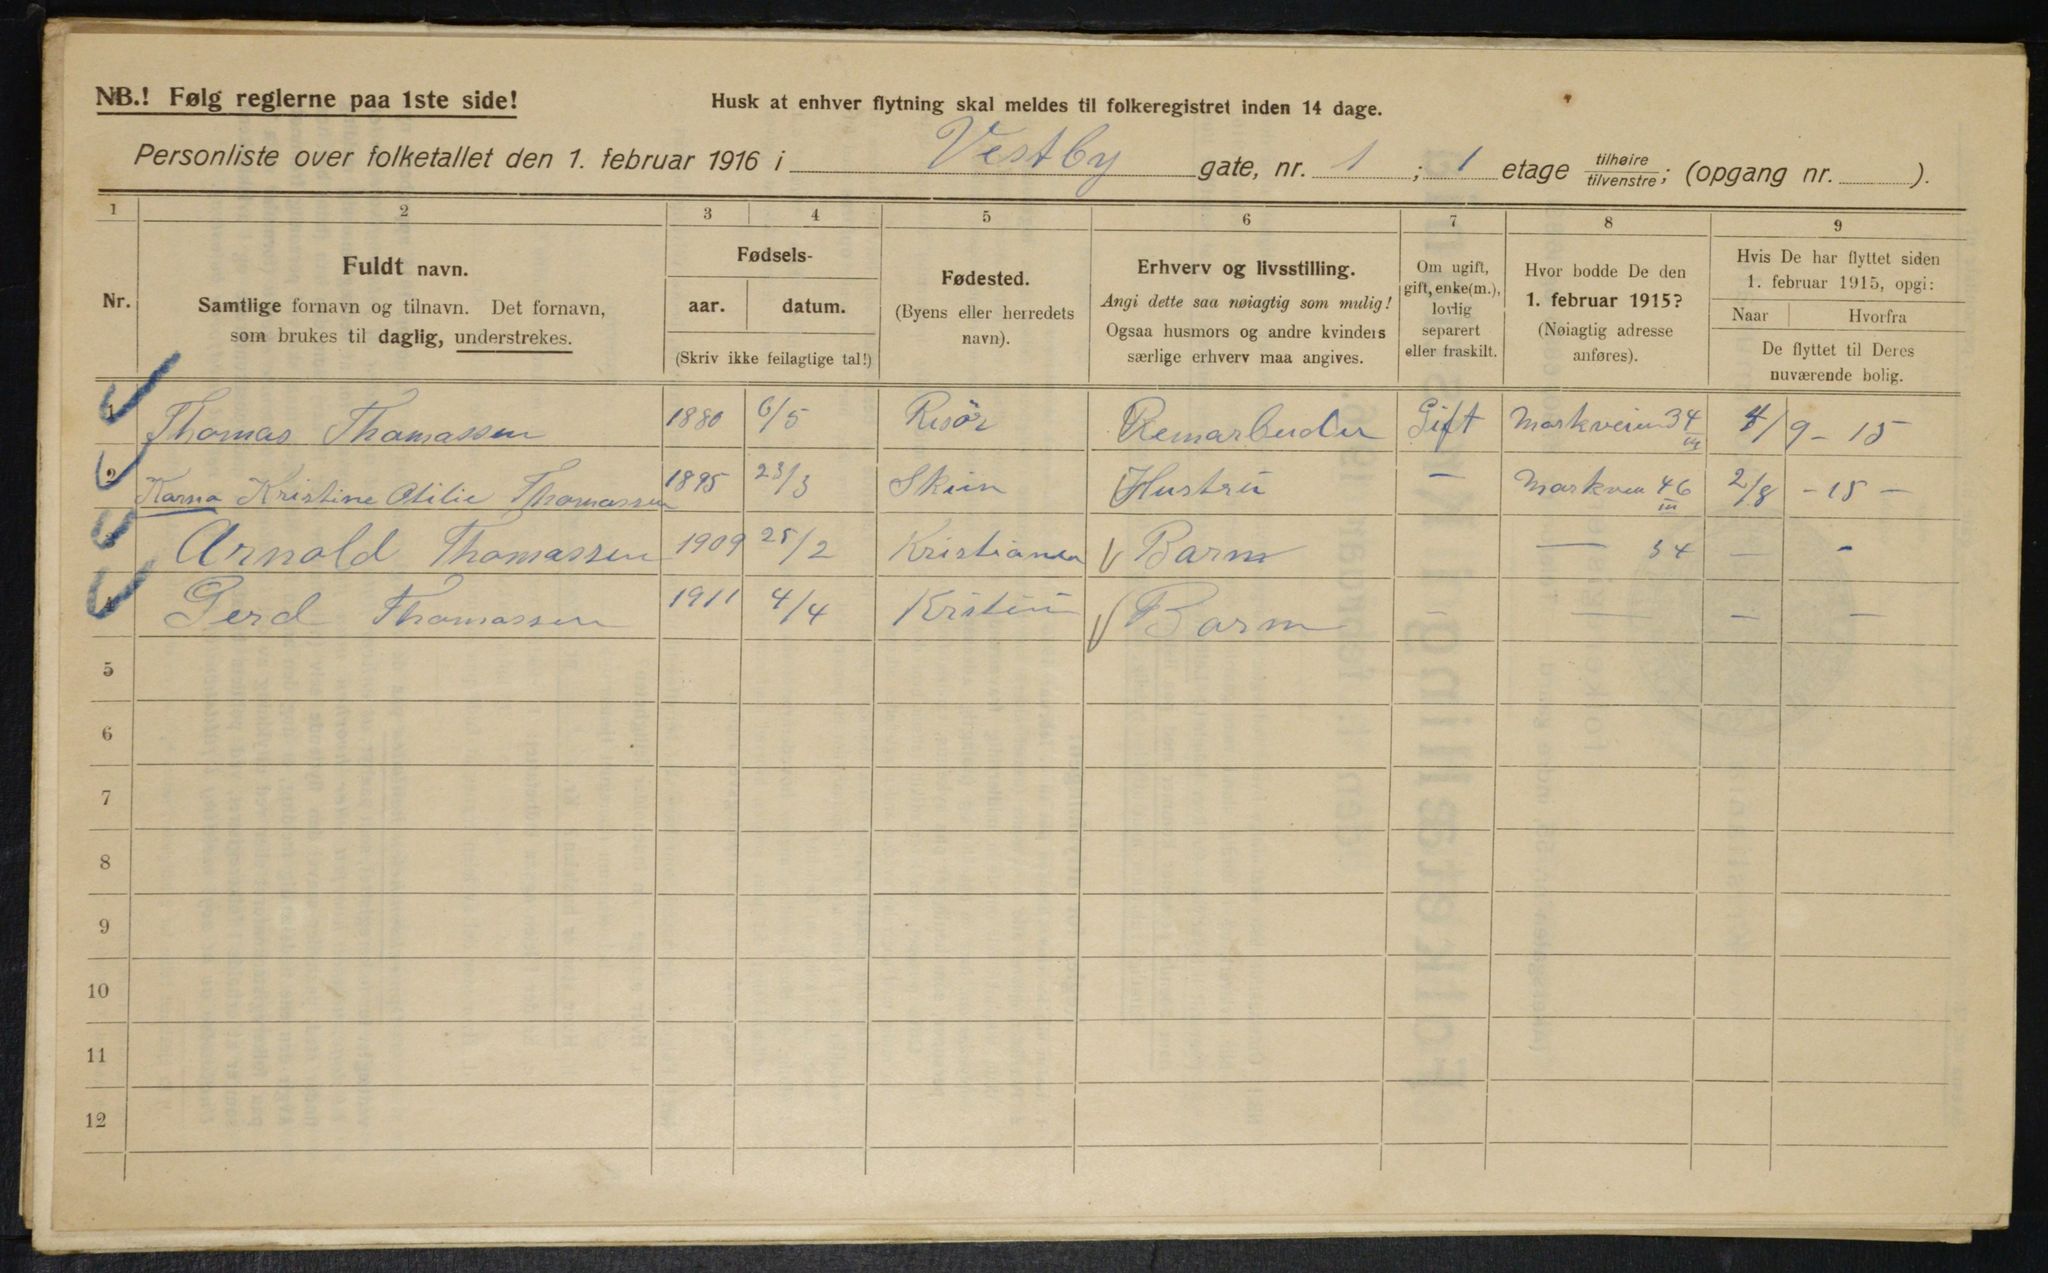 NB.! Følg reglerne paa 1ste side!
Husk at enhver flytning skal meldes til folkeregistret inden 14 dage.
Personliste over folketallet den 1. februar 1916 i Vestby gate, nr. 1 ; 1 etage tilhøire/tilvenstre; (opgang nr. ).
1 2 3 4 5 6 7 8 9
Nr.
Fuldt navn.
Samtlige fornavn og tilnavn. Det fornavn,
som brukes til daglig, understrekes.
Fødsels-
aar. datum.
(Skriv ikke feilagtige tal!)
Fødested.
(Byens eller herredets
navn).
Erhverv og livsstilling.
Angi dette saa nøiagtig som mulig!
Ogsaa husmors og andre kvinders
særlige erhverv maa angives.
Om ugift,
gift, enke(m.),
lovlig
separert
eller fraskilt.
Hvor bodde De den
1. februar 1915?
(Nøiagtig adresse
anføres).
Hvis De har flyttet siden
1. februar 1915, opgi:
Naar Hvorfra
De flyttet til Deres
nuværende bolig.
1 Thomas Thomassen 1880 6/5 Risör Remarbeider Gift Markveien 34 III 1/9 - 15
2 Karna Kristine Otilie Thomassen 1895 23/3 Skien Hustru - Markvei 46 III 2/8 - 15 -
3 Arnold Thomassen 1909 25/2 Kristiania Barn — 34 — -
4 Gerd Thomassen 1911 4/4 Barn — — —
5
6
7
8
9
10
11
12